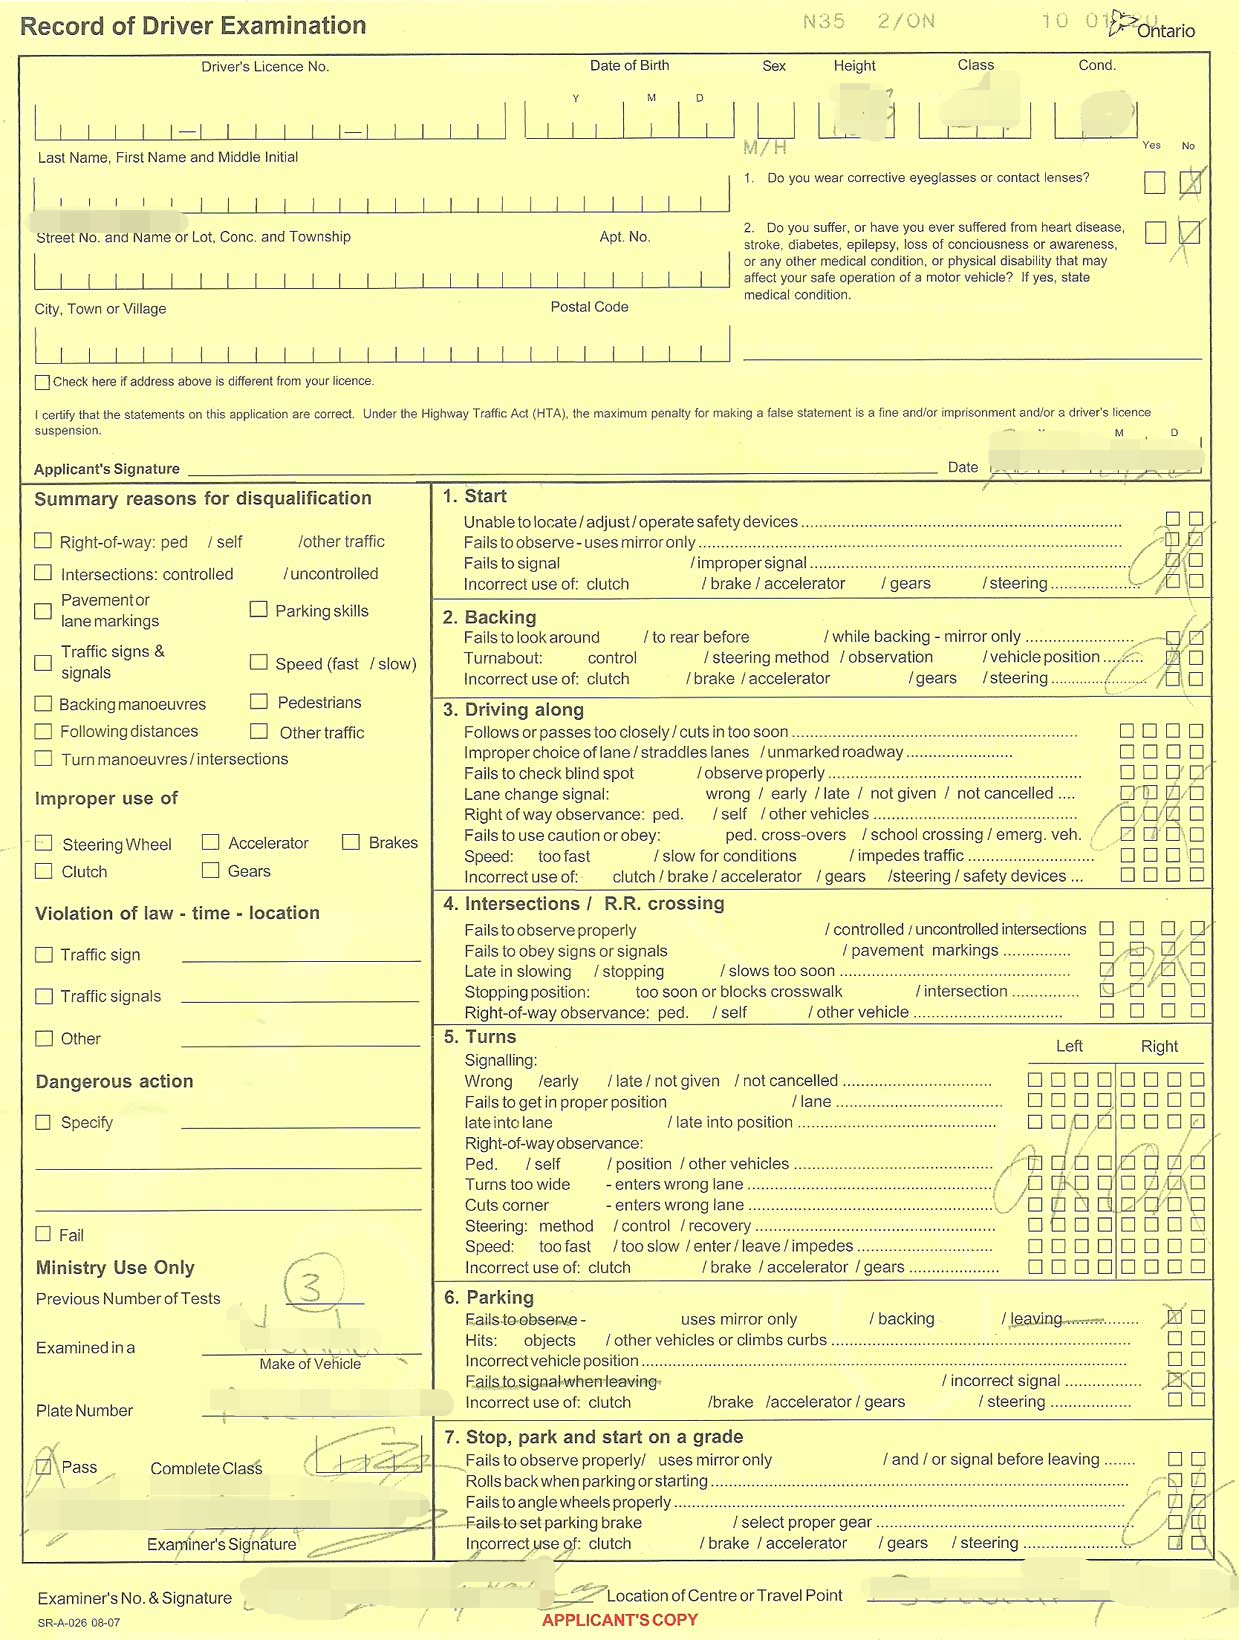 Record of Driver Examination
N35 2/ON
Ontario
Driver's Licence No. Date of Birth Sex Height Class Cond.
Y M D
M/H
Yes No
Last Name, First Name and Middle Initial
1. Do you wear corrective eyeglasses or contact lenses?
Street No. and Name or Lot, Conc. and Township Apt. No.
2. Do you suffer, or have you ever suffered from heart disease,
stroke, diabetes, epilepsy, loss of conciousness or awareness,
or any other medical condition, or physical disability that may
affect your safe operation of a motor vehicle? If yes, state
medical condition.
City, Town or Village Postal Code
Check here if address above is different from your licence.
I certify that the statements on this application are correct. Under the Highway Traffic Act (HTA), the maximum penalty for making a false statement is a fine and/or imprisonment and/or a driver's licence
suspension.
M D
Applicant's Signature Date
Summary reasons for disqualification
Right-of-way: ped / self /other traffic
Intersections: controlled / uncontrolled
Pavement or
lane markings
Parking skills
Traffic signs &
signals
Speed (fast / slow)
Backing manoeuvres Pedestrians
Following distances Other traffic
Turn manoeuvres / intersections
Improper use of
Steering Wheel Accelerator Brakes
Clutch Gears
Violation of law - time - location
Traffic sign
Traffic signals
Other
Dangerous action
Specify
Fail
Ministry Use Only
Previous Number of Tests 3
Examined in a
Make of Vehicle
Plate Number
Pass Complete Class G2
Examiner's Signature
1. Start
Unable to locate / adjust / operate safety devices
Fails to observe - uses mirror only
Fails to signal / improper signal
Incorrect use of: clutch / brake / accelerator / gears / steering
OK
2. Backing
Fails to look around / to rear before / while backing - mirror only
Turnabout: control / steering method / observation / vehicle position
Incorrect use of: clutch / brake / accelerator / gears / steering
OK
3. Driving along
Follows or passes too closely / cuts in too soon
Improper choice of lane / straddles lanes / unmarked roadway
Fails to check blind spot / observe properly
Lane change signal: wrong / early / late / not given / not cancelled
Right of way observance: ped. / self / other vehicles
Fails to use caution or obey: ped. cross-overs / school crossing / emerg. veh.
Speed: too fast / slow for conditions / impedes traffic
Incorrect use of: clutch / brake / accelerator / gears /steering / safety devices
OK
4. Intersections / R.R. crossing
Fails to observe properly / controlled / uncontrolled intersections
Fails to obey signs or signals / pavement markings
Late in slowing / stopping / slows too soon
Stopping position: too soon or blocks crosswalk / intersection
Right-of-way observance: ped. / self / other vehicle
OK
5. Turns
Left Right
Signalling:
Wrong /early / late / not given / not cancelled
Fails to get in proper position / lane
late into lane / late into position
Right-of-way observance:
Ped. / self / position / other vehicles
Turns too wide - enters wrong lane
Cuts corner - enters wrong lane
Steering: method / control / recovery
Speed: too fast / too slow / enter / leave / impedes
Incorrect use of: clutch / brake / accelerator / gears
OK OK
6. Parking
Fails to observe - uses mirror only / backing / leaving
Hits: objects / other vehicles or climbs curbs
Incorrect vehicle position
Fails to signal when leaving / incorrect signal
Incorrect use of: clutch /brake /accelerator / gears / steering
7. Stop, park and start on a grade
Fails to observe properly/ uses mirror only / and / or signal before leaving
Rolls back when parking or starting
Fails to angle wheels properly
Fails to set parking brake / select proper gear
Incorrect use of: clutch / brake / accelerator / gears / steering
OK
Examiner's No. & Signature Location of Centre or Travel Point
SR-A-026 08-07
APPLICANT'S COPY